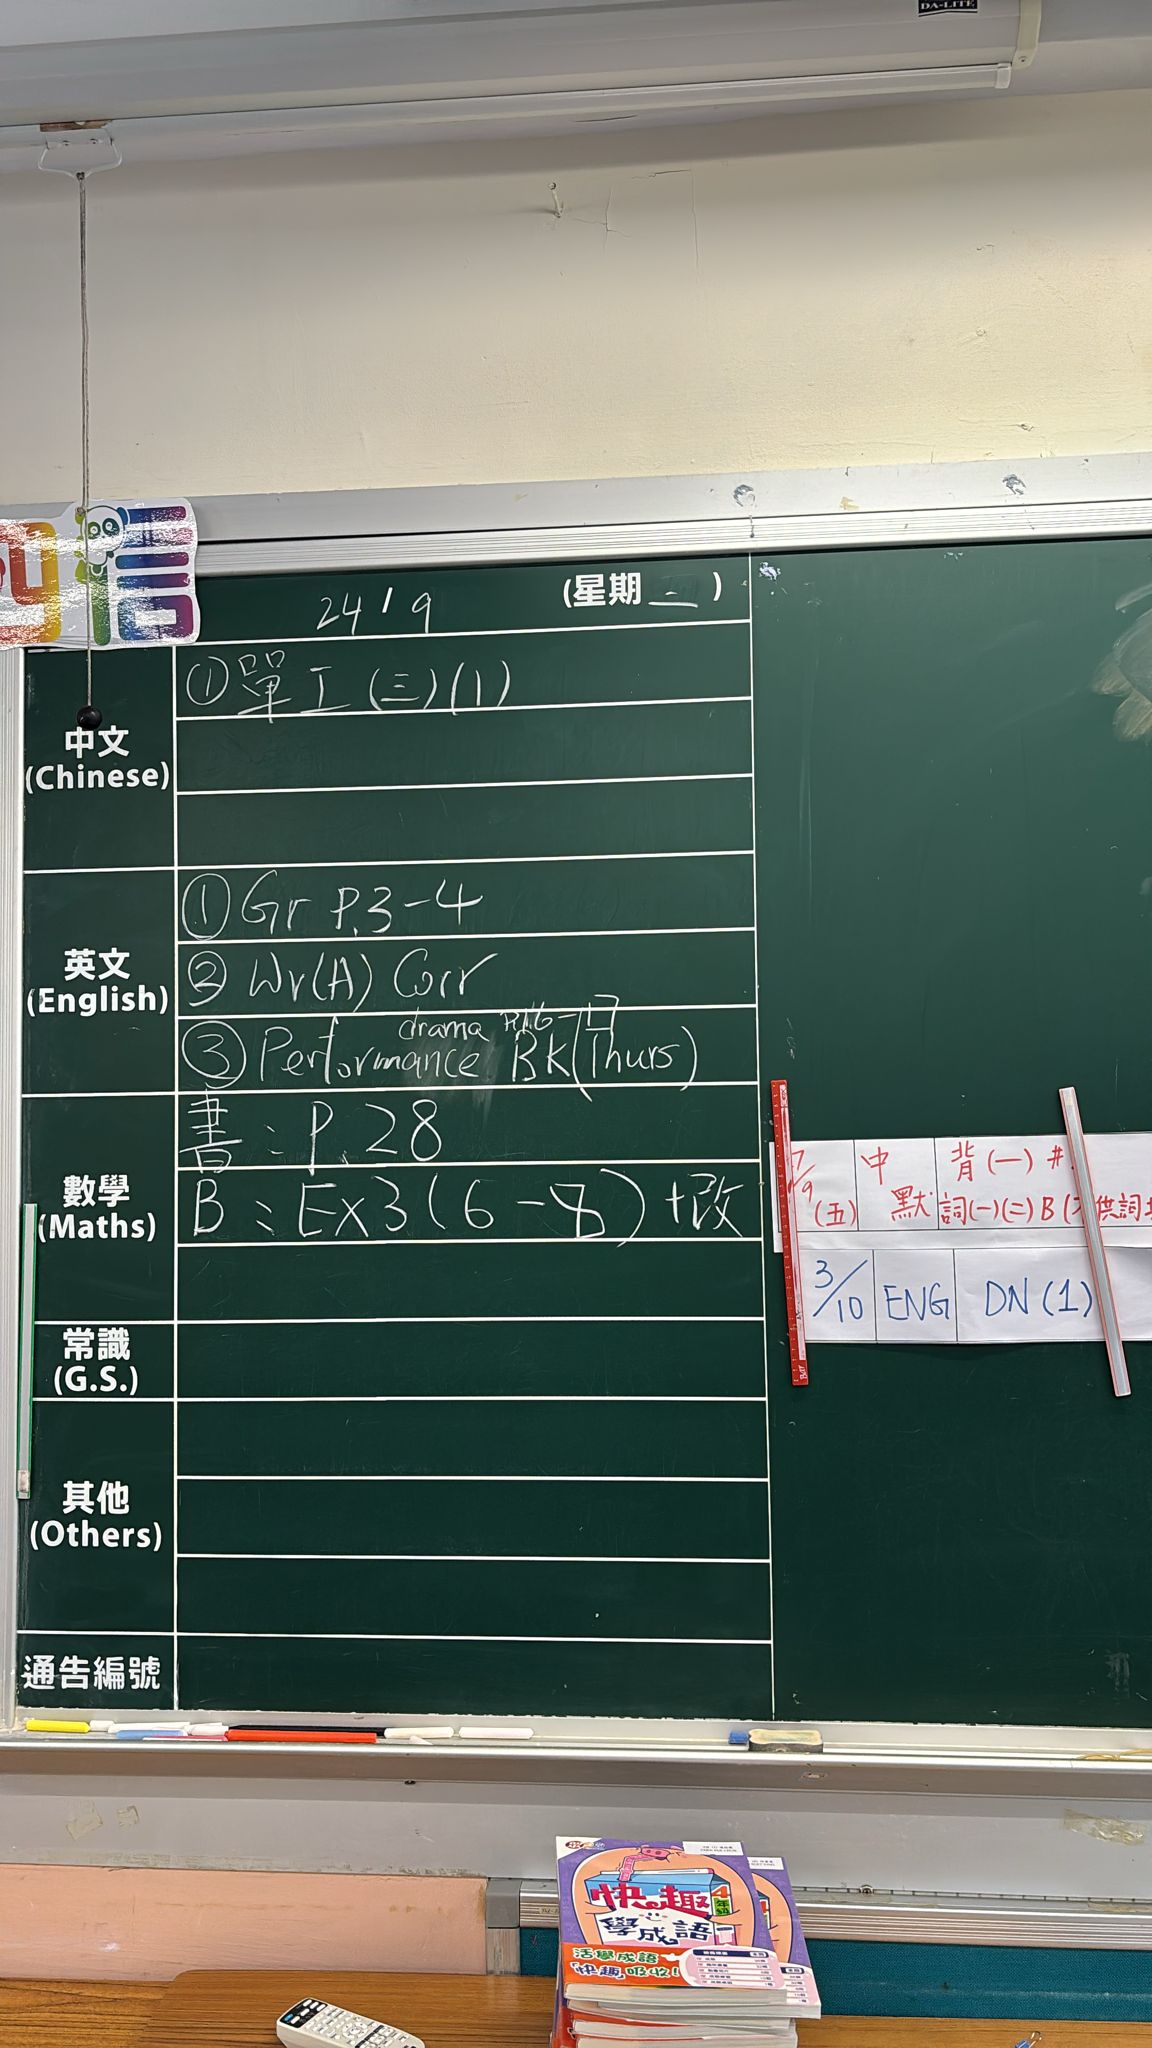 DA-LITE
信
24/9 (星期二)
中文
(Chinese)
①單工(三)(1)
英文
(English)
①Gr P.3-4
②Wr(A) Corr
drama P.16-17
③Performance BK(Thurs)
數學
(Maths)
書:P.28
B:Ex3(6-8)+改
常識
(G.S.)
其他
(Others)
通告編號
7/9 (五) 中默 背(一)#
詞(一)(二)B(不供詞
3/10 ENG DN(1)
快趣
學成語
4年級
活學成語
「快趣」吸收!